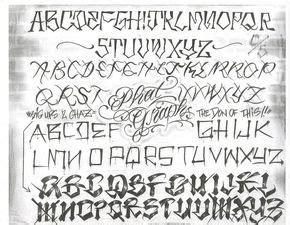 ABCDEFGHIJKLMNOPQR
STUVWXYZ
ABCDEFGHIJKLMNOP
QRST UVWXYZ
Phat
Graphix
"BIG UPS 2 CHAZ" THE DON OF THIS!!"
ABCDEF GHIJK
LMNOPQRSTUVWXYZ
ABCDEFGHIJKL
MNOPQRSTUVWXYZ